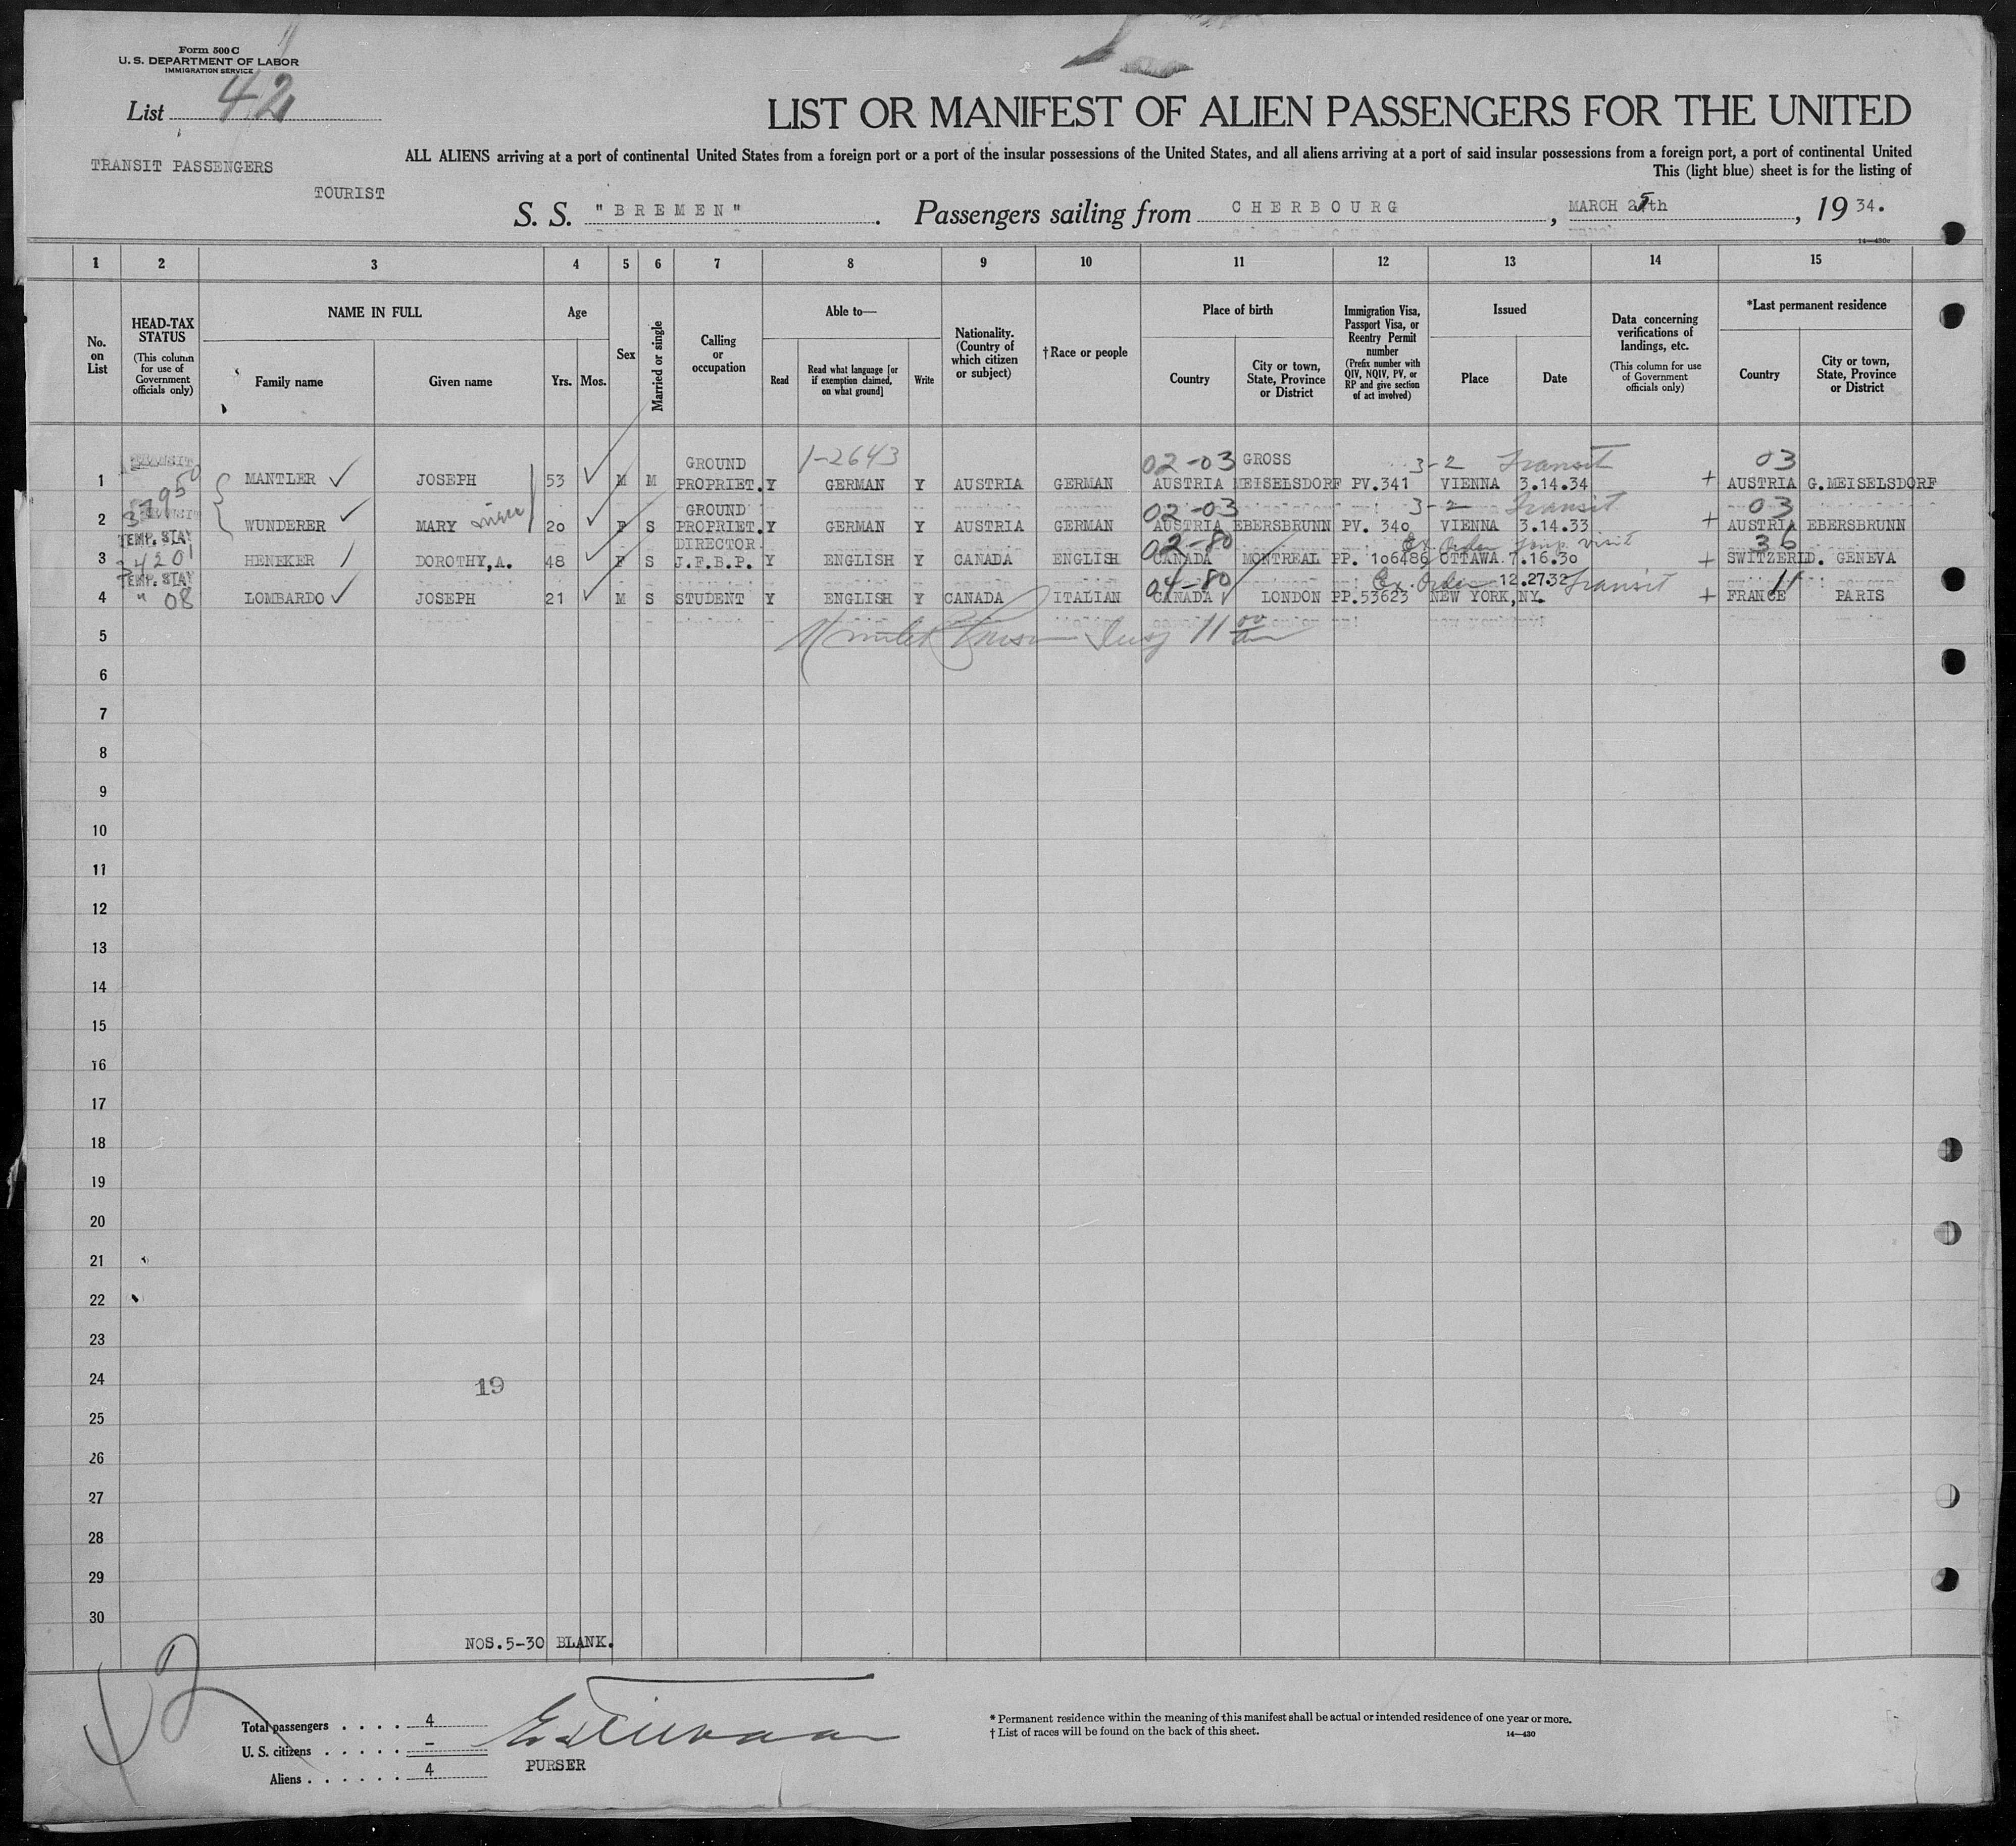 Form 500 C
U. S. DEPARTMENT OF LABOR
IMMIGRATION SERVICE
List 42
LIST OR MANIFEST OF ALIEN PASSENGERS FOR THE UNITED
ALL ALIENS arriving at a port of continental United States from a foreign port or a port of the insular possessions of the United States, and all aliens arriving at a port of said insular possessions from a foreign port, a port of continental United
This (light blue) sheet is for the listing of
TRANSIT PASSENGERS
TOURIST
S. S. "BREMEN". Passengers sailing from CHERBOURG, MARCH 25th, 1934.
14—430c
1 2 3 4 5 6 7 8 9 10 11 12 13 14 15
No. on List
HEAD-TAX STATUS (This column for use of Government officials only)
NAME IN FULL
Family name Given name
Age
Yrs. Mos.
Sex
Married or single
Calling or occupation
Able to—
Read
Read what language [or if exemption claimed, on what ground]
Write
Nationality. (Country of which citizen or subject)
† Race or people
Place of birth
Country
City or town, State, Province or District
Immigration Visa, Passport Visa, or Reentry Permit number (Prefix number with QIV, NQIV, PV, or RP and give section of act involved)
Issued
Place Date
Data concerning verifications of landings, etc. (This column for use of Government officials only)
*Last permanent residence
Country
City or town, State, Province or District
TRANSIT GROUND 1-2643 02-03 GROSS 3-2 Transit 03
1 MANTLER JOSEPH 53 M M PROPRIET. Y GERMAN Y AUSTRIA GERMAN AUSTRIA MEISELSDORF PV.341 VIENNA 3.14.34 + AUSTRIA G.MEISELSDORF
TRANSIT GROUND 02-03 3-2 Transit 03
2 WUNDERER MARY niece 20 F S PROPRIET. Y GERMAN Y AUSTRIA GERMAN AUSTRIA EBERSBRUNN PV. 340 VIENNA 3.14.33 + AUSTRIA EBERSBRUNN
TEMP. STAY DIRECTOR 02-80 Ex Order Temp. visit 36
3 HENEKER DOROTHY,A. 48 F S J.F.B.P. Y ENGLISH Y CANADA ENGLISH CANADA MONTREAL PP. 106486 OTTAWA 7.16.30 + SWITZERLD. GENEVA
TEMP. STAY 04-80 Ex. Order 12.27.32 Transit 11
4 " 08 LOMBARDO JOSEPH 21 M S STUDENT Y ENGLISH Y CANADA ITALIAN CANADA LONDON PP.53623 NEW YORK,NY. + FRANCE PARIS
5
6
7
8
9
10
11
12
13
14
15
16
17
18
19
20
21
22
23
24
19
25
26
27
28
29
30
NOS.5-30 BLANK.
42
Total passengers . . . . 4
U. S. citizens . . . . . –
Aliens . . . . . . 4
PURSER
* Permanent residence within the meaning of this manifest shall be actual or intended residence of one year or more.
† List of races will be found on the back of this sheet.
14—430